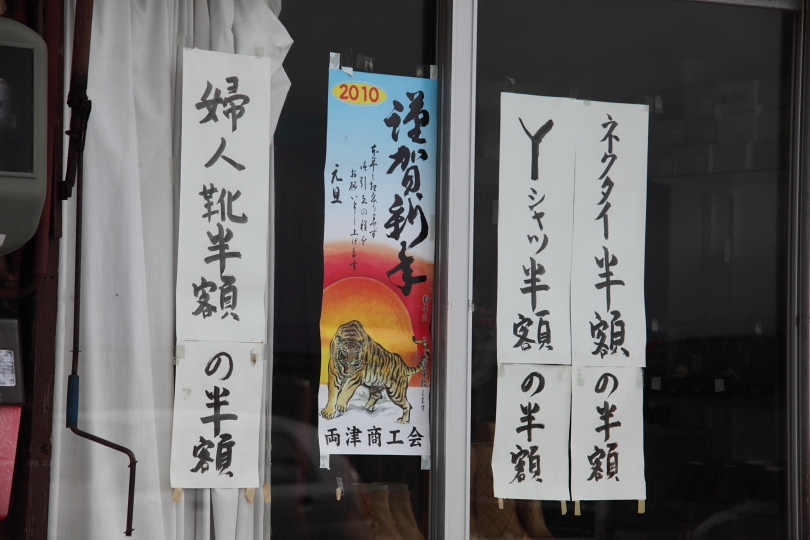 ネクタイ半額
の半額
Yシャツ半額
の半額
2010
謹賀新年
本年も相変らず
お引立の程を
お願い申し上げます
元旦
両津商工会
婦人靴半額
の半額